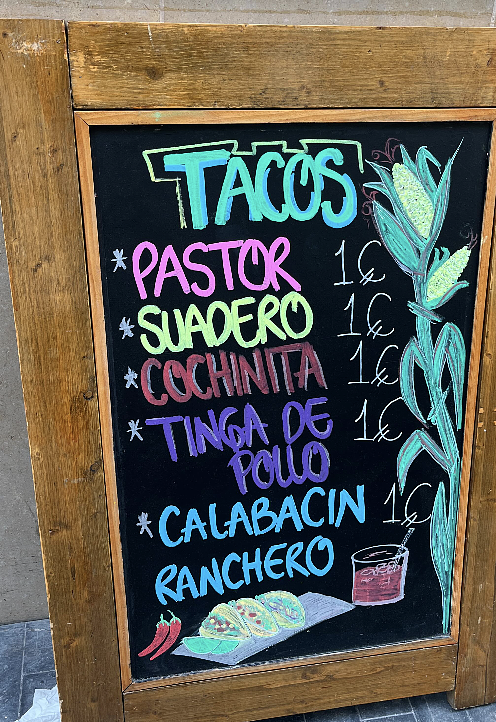 TACOS
* PASTOR 1€
* SUADERO 1€
* COCHINITA 1€
* TINGA DE 1€
POLLO
* CALABACIN 1€
RANCHERO